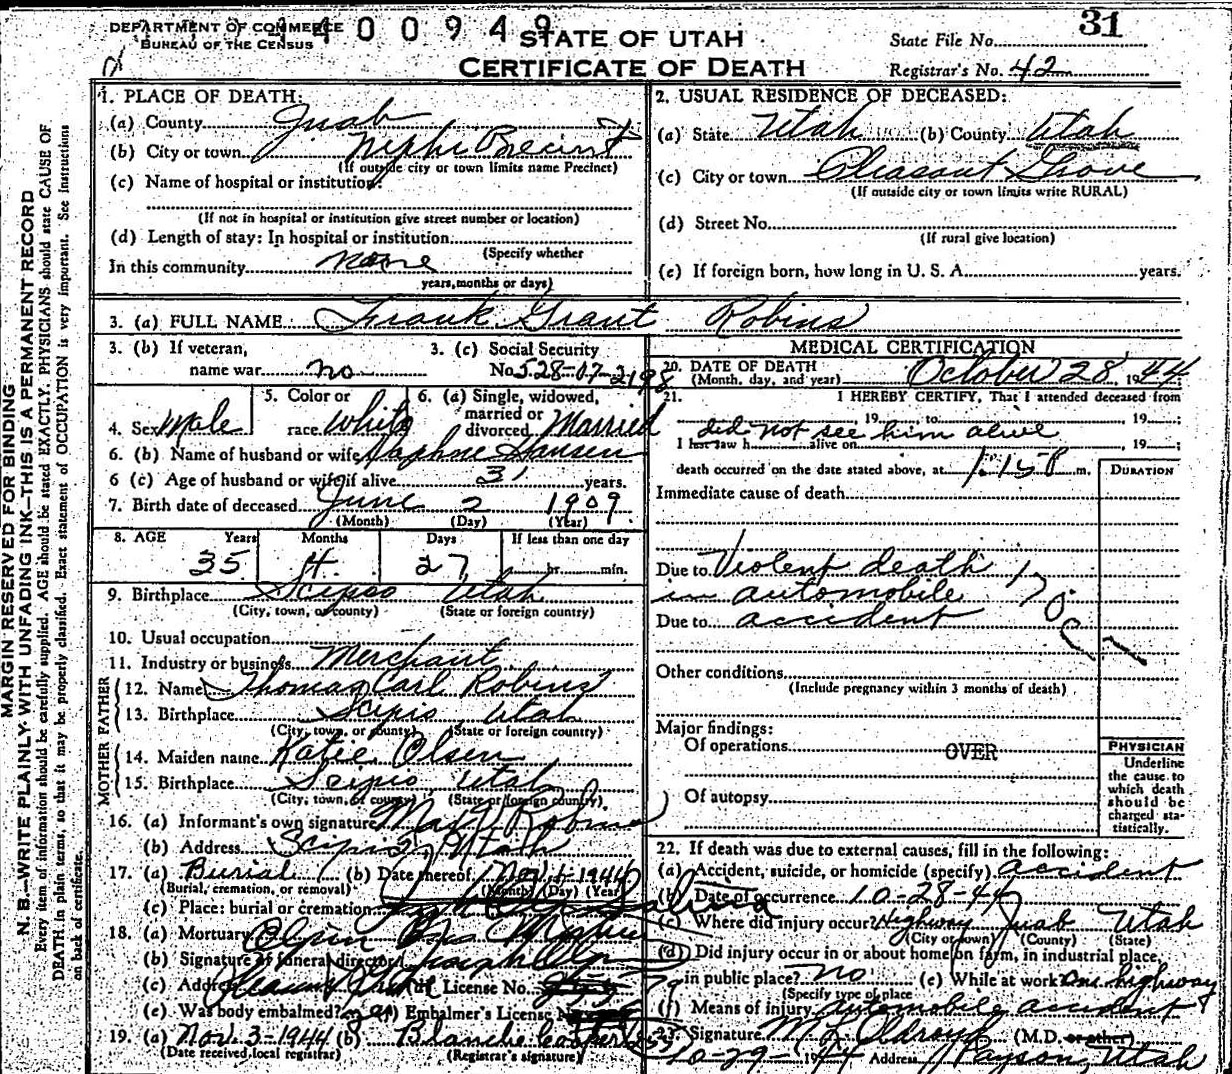 DEPARTMENT OF COMMERCE
BUREAU OF THE CENSUS
400949
STATE OF UTAH
CERTIFICATE OF DEATH
State File No. 31
Registrar's No. 42
MARGIN RESERVED FOR BINDING
N. B.—WRITE PLAINLY, WITH UNFADING INK—THIS IS A PERMANENT RECORD
Every item of information should be carefully supplied. AGE should be stated EXACTLY. PHYSICIANS should state CAUSE OF
DEATH in plain terms, so that it may be properly classified. Exact statement of OCCUPATION is very important. See instructions
on back of certificate.
1. PLACE OF DEATH:
(a) County Juab
(b) City or town Nephi Precinct
(If outside city or town limits name Precinct)
(c) Name of hospital or institution:
(If not in hospital or institution give street number or location)
(d) Length of stay: In hospital or institution
(Specify whether
In this community none
years, months or days)
2. USUAL RESIDENCE OF DECEASED:
(a) State Utah (b) County Utah
(c) City or town Pleasant Grove
(If outside city or town limits write RURAL)
(d) Street No.
(If rural give location)
(e) If foreign born, how long in U. S. A. years.
3. (a) FULL NAME Frank Grant Robins
3. (b) If veteran,
name war no
3. (c) Social Security
No. 528-07-2198
4. Sex Male
5. Color or
race White
6. (a) Single, widowed,
married or
divorced Married
6. (b) Name of husband or wife Daphne Hansen
6 (c) Age of husband or wife if alive 31 years.
7. Birth date of deceased June 2 1909
(Month) (Day) (Year)
8. AGE Years Months Days If less than one day
35 4 27 hr. min.
9. Birthplace Scipio Utah
(City, town, or county) (State or foreign country)
10. Usual occupation
11. Industry or business Merchant
FATHER
12. Name Thomas Carl Robins
13. Birthplace Scipio Utah
(City, town, or county) (State or foreign country)
MOTHER
14. Maiden name Katie Olsen
15. Birthplace Scipio Utah
(City, town, or county) (State or foreign country)
16. (a) Informant's own signature Robins
(b) Address Scipio Utah
17. (a) Burial (b) Date thereof Nov 1-1944
(Burial, cremation, or removal) (Month) (Day) (Year)
(c) Place: burial or cremation
18. (a) Mortuary Olpin Bros
(b) Signature of funeral director Joseph Olpin
(c) Address License No.
(e) Was body embalmed? (f) Embalmer's License No.
19. (a) Nov. 3-1944 (b) Blanche Cooper
(Date received local registrar) (Registrar's signature)
MEDICAL CERTIFICATION
20. DATE OF DEATH
(Month, day, and year) October 28, 1944;
21. I HEREBY CERTIFY, That I attended deceased from
19 to 19 ;
did not see him alive
I last saw h alive on 19 ;
death occurred on the date stated above, at 1:15 P m.
DURATION
Immediate cause of death
Due to Violent death
in automobile
Due to accident
170c
Other conditions
(Include pregnancy within 3 months of death)
Major findings:
Of operations
OVER
Of autopsy
PHYSICIAN
Underline
the cause to
which death
should be
charged sta-
tistically.
22. If death was due to external causes, fill in the following:
(a) Accident, suicide, or homicide (specify) accident
(b) Date of occurrence 10-28-44
(c) Where did injury occur? Highway Juab Utah
(City or town) (County) (State)
(d) Did injury occur in or about home on farm, in industrial place,
in public place? no (e) While at work on highway
(Specify type of place)
(f) Means of injury automobile accident
23. Signature M. L. Oldroyd (M.D. or other)
10-29-1944 Address Payson, Utah